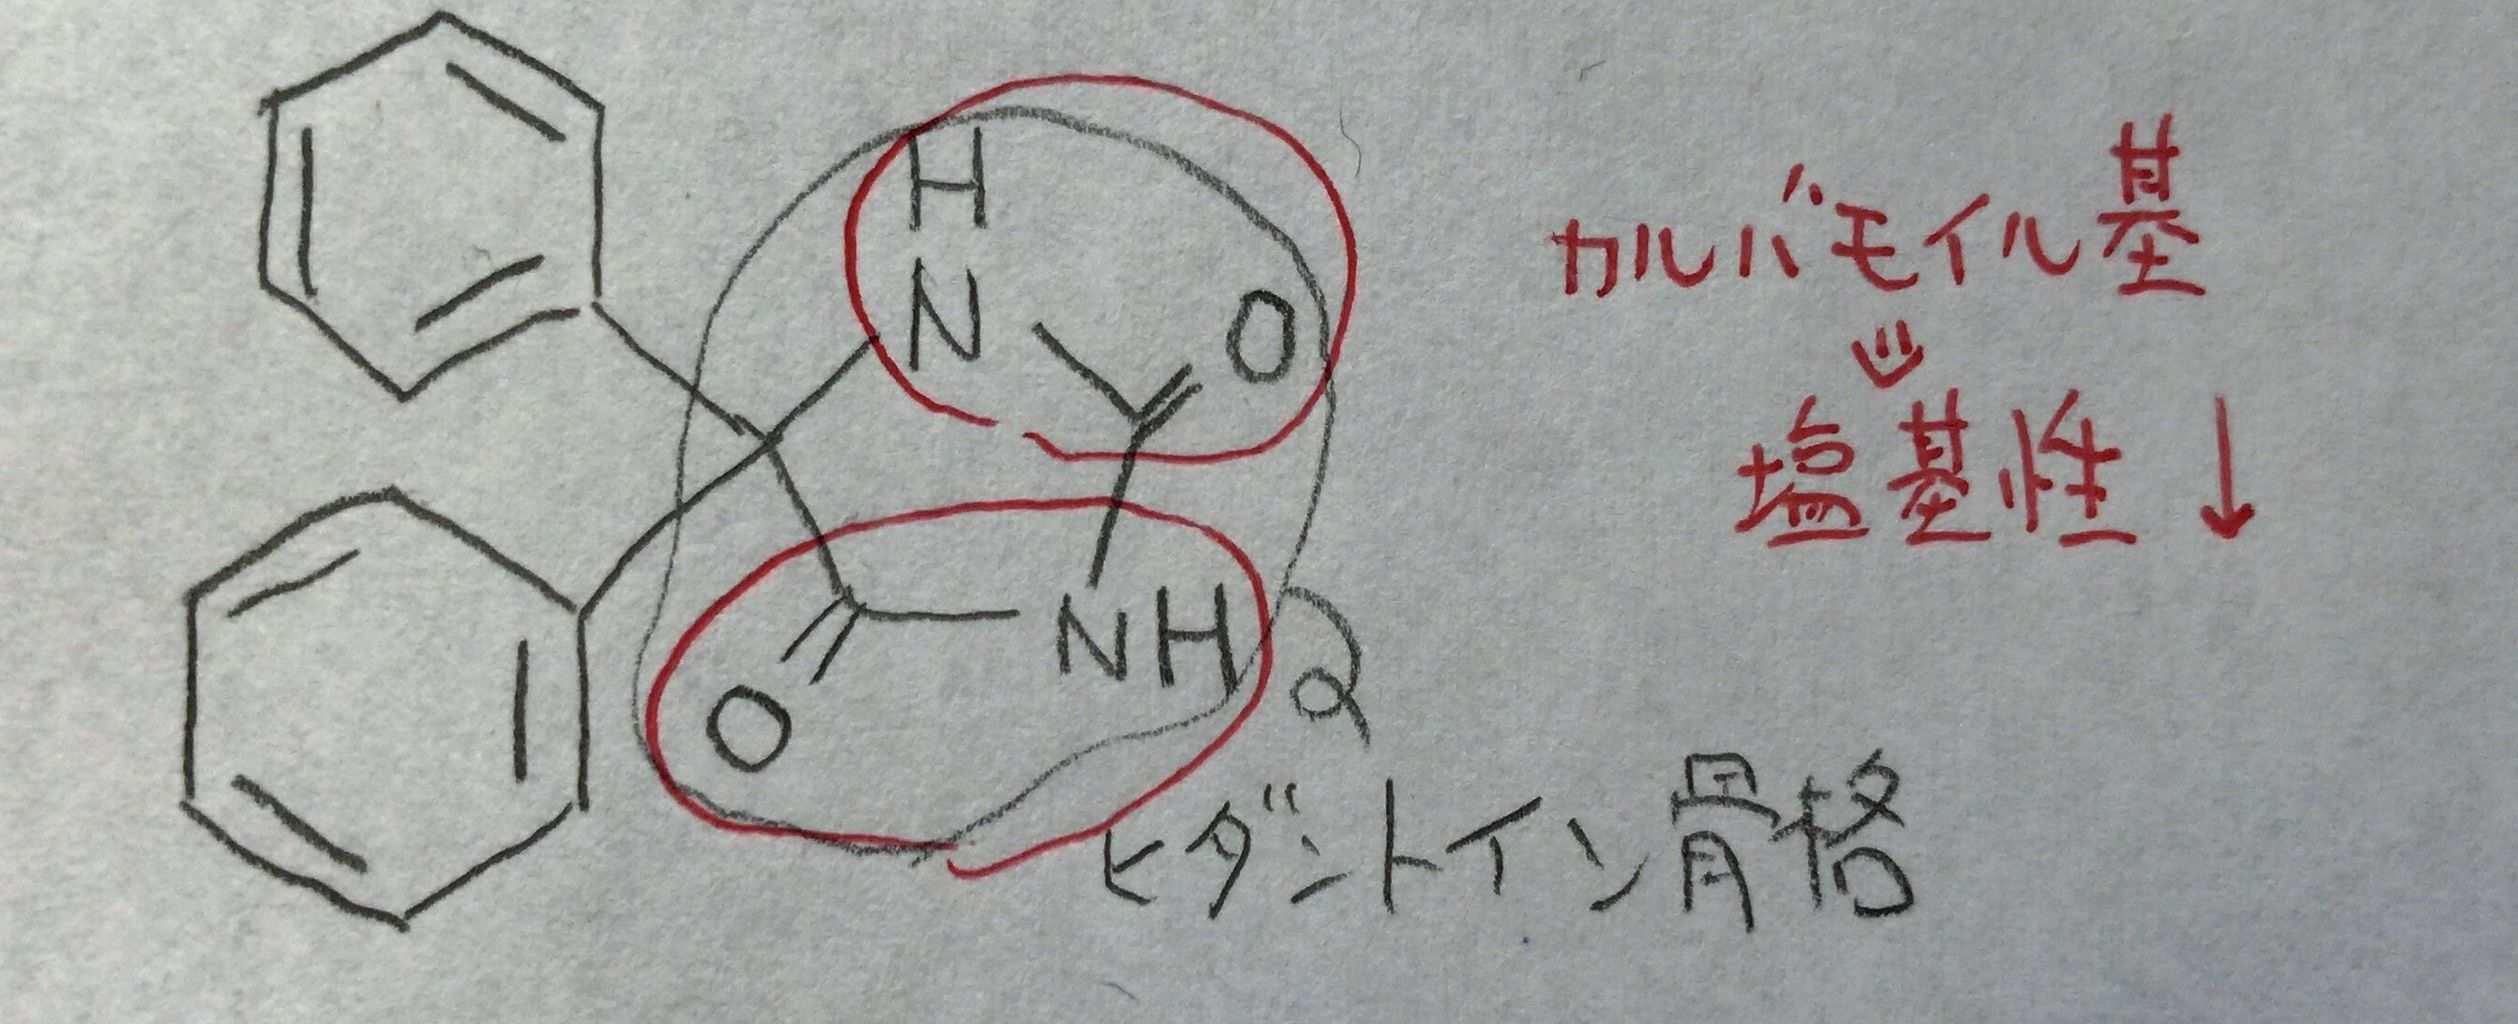 H
N
O
NH
O
カルバモイル基
⇓
塩基性↓
ヒダントイン骨格